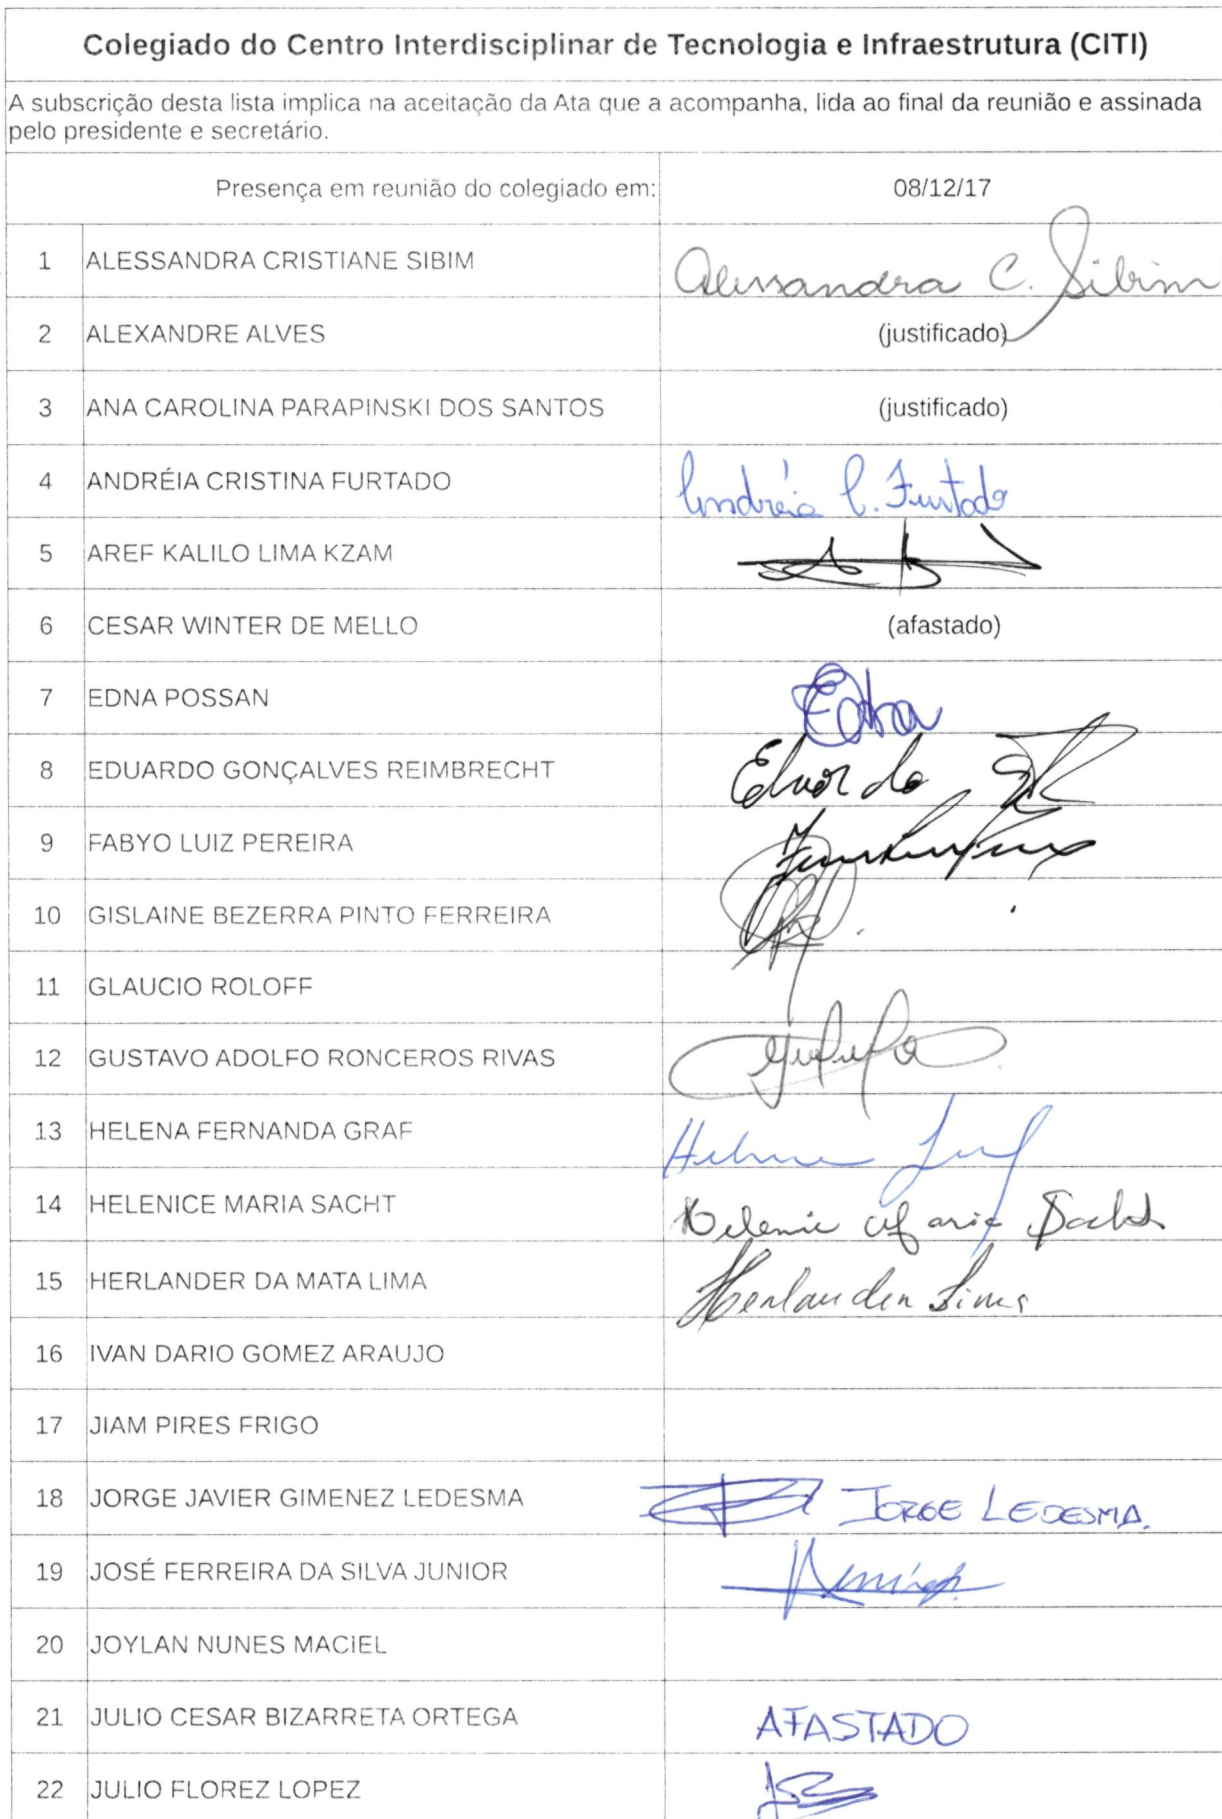 Colegiado do Centro Interdisciplinar de Tecnologia e Infraestrutura (CITI)
A subscrição desta lista implica na aceitação da Ata que a acompanha, lida ao final da reunião e assinada
pelo presidente e secretário.
Presença em reunião do colegiado em: 08/12/17
1 ALESSANDRA CRISTIANE SIBIM Alessandra C. Sibim
2 ALEXANDRE ALVES (justificado)
3 ANA CAROLINA PARAPINSKI DOS SANTOS (justificado)
4 ANDRÉIA CRISTINA FURTADO Andréia C. Furtado
5 AREF KALILO LIMA KZAM
6 CESAR WINTER DE MELLO (afastado)
7 EDNA POSSAN Edna
8 EDUARDO GONÇALVES REIMBRECHT Eduardo
9 FABYO LUIZ PEREIRA
10 GISLAINE BEZERRA PINTO FERREIRA
11 GLAUCIO ROLOFF
12 GUSTAVO ADOLFO RONCEROS RIVAS
13 HELENA FERNANDA GRAF Helena Graf
14 HELENICE MARIA SACHT Helenice Maria Sacht
15 HERLANDER DA MATA LIMA Herlander Lima
16 IVAN DARIO GOMEZ ARAUJO
17 JIAM PIRES FRIGO
18 JORGE JAVIER GIMENEZ LEDESMA JORGE LEDESMA.
19 JOSÉ FERREIRA DA SILVA JUNIOR
20 JOYLAN NUNES MACIEL
21 JULIO CESAR BIZARRETA ORTEGA AFASTADO
22 JULIO FLOREZ LOPEZ